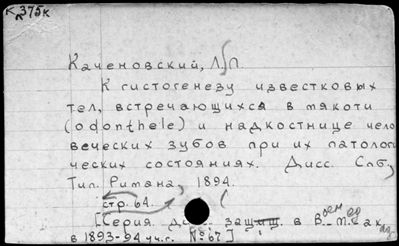 К375к
Каченовский, Л.П.
К гистогенезу известковых
тел, встречающихся в мякоти
(odonthele) и надкостнице чело
веческих зубов при их патологи
ческих состояниях. Дисс. Спб,
Тип. Римана, 1894.
стр. 64.
[Серия дисс. защищ. в Воен.-мед. ак.
в 1893-94 уч.г. № 67]